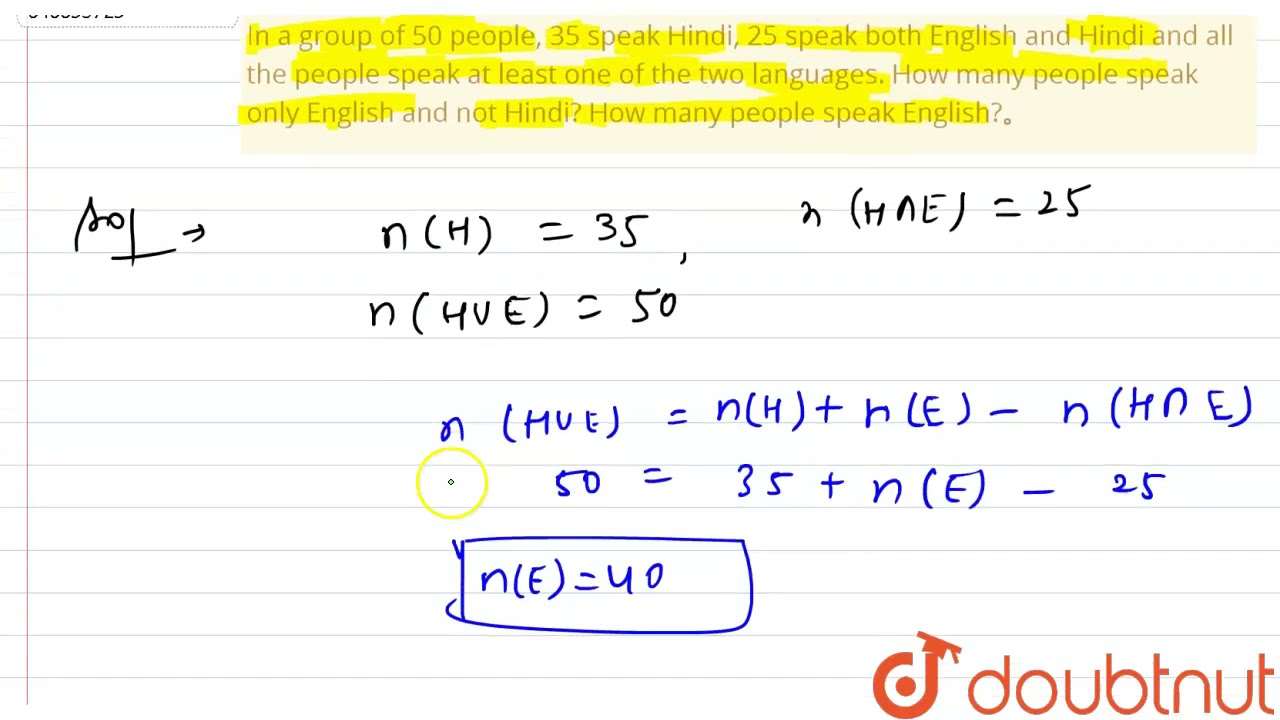 In a group of 50 people, 35 speak Hindi, 25 speak both English and Hindi and all
the people speak at least one of the two languages. How many people speak
only English and not Hindi? How many people speak English?。
Sol → n(H) = 35, n(H∩E) = 25
n(H∪E) = 50
n(H∪E) = n(H) + n(E) - n(H∩E)
50 = 35 + n(E) - 25
n(E) = 40
doubtnut